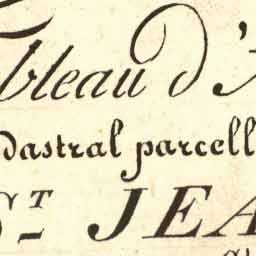 bleau d'A
dastral parcell
ST JEA